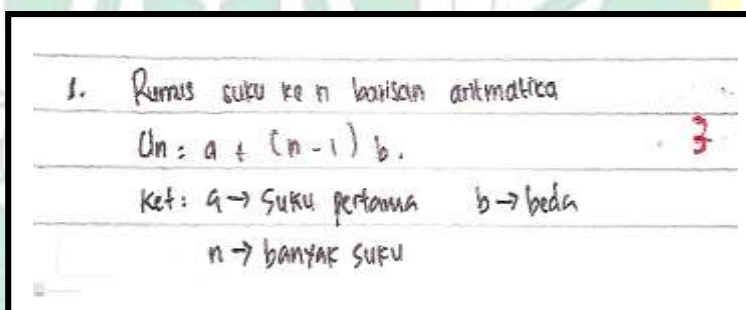 1. Rumus suku ke n barisan aritmatica
Un = a + (n - 1) b.
3
Ket: a → suku pertama b → beda
n → banyak suku